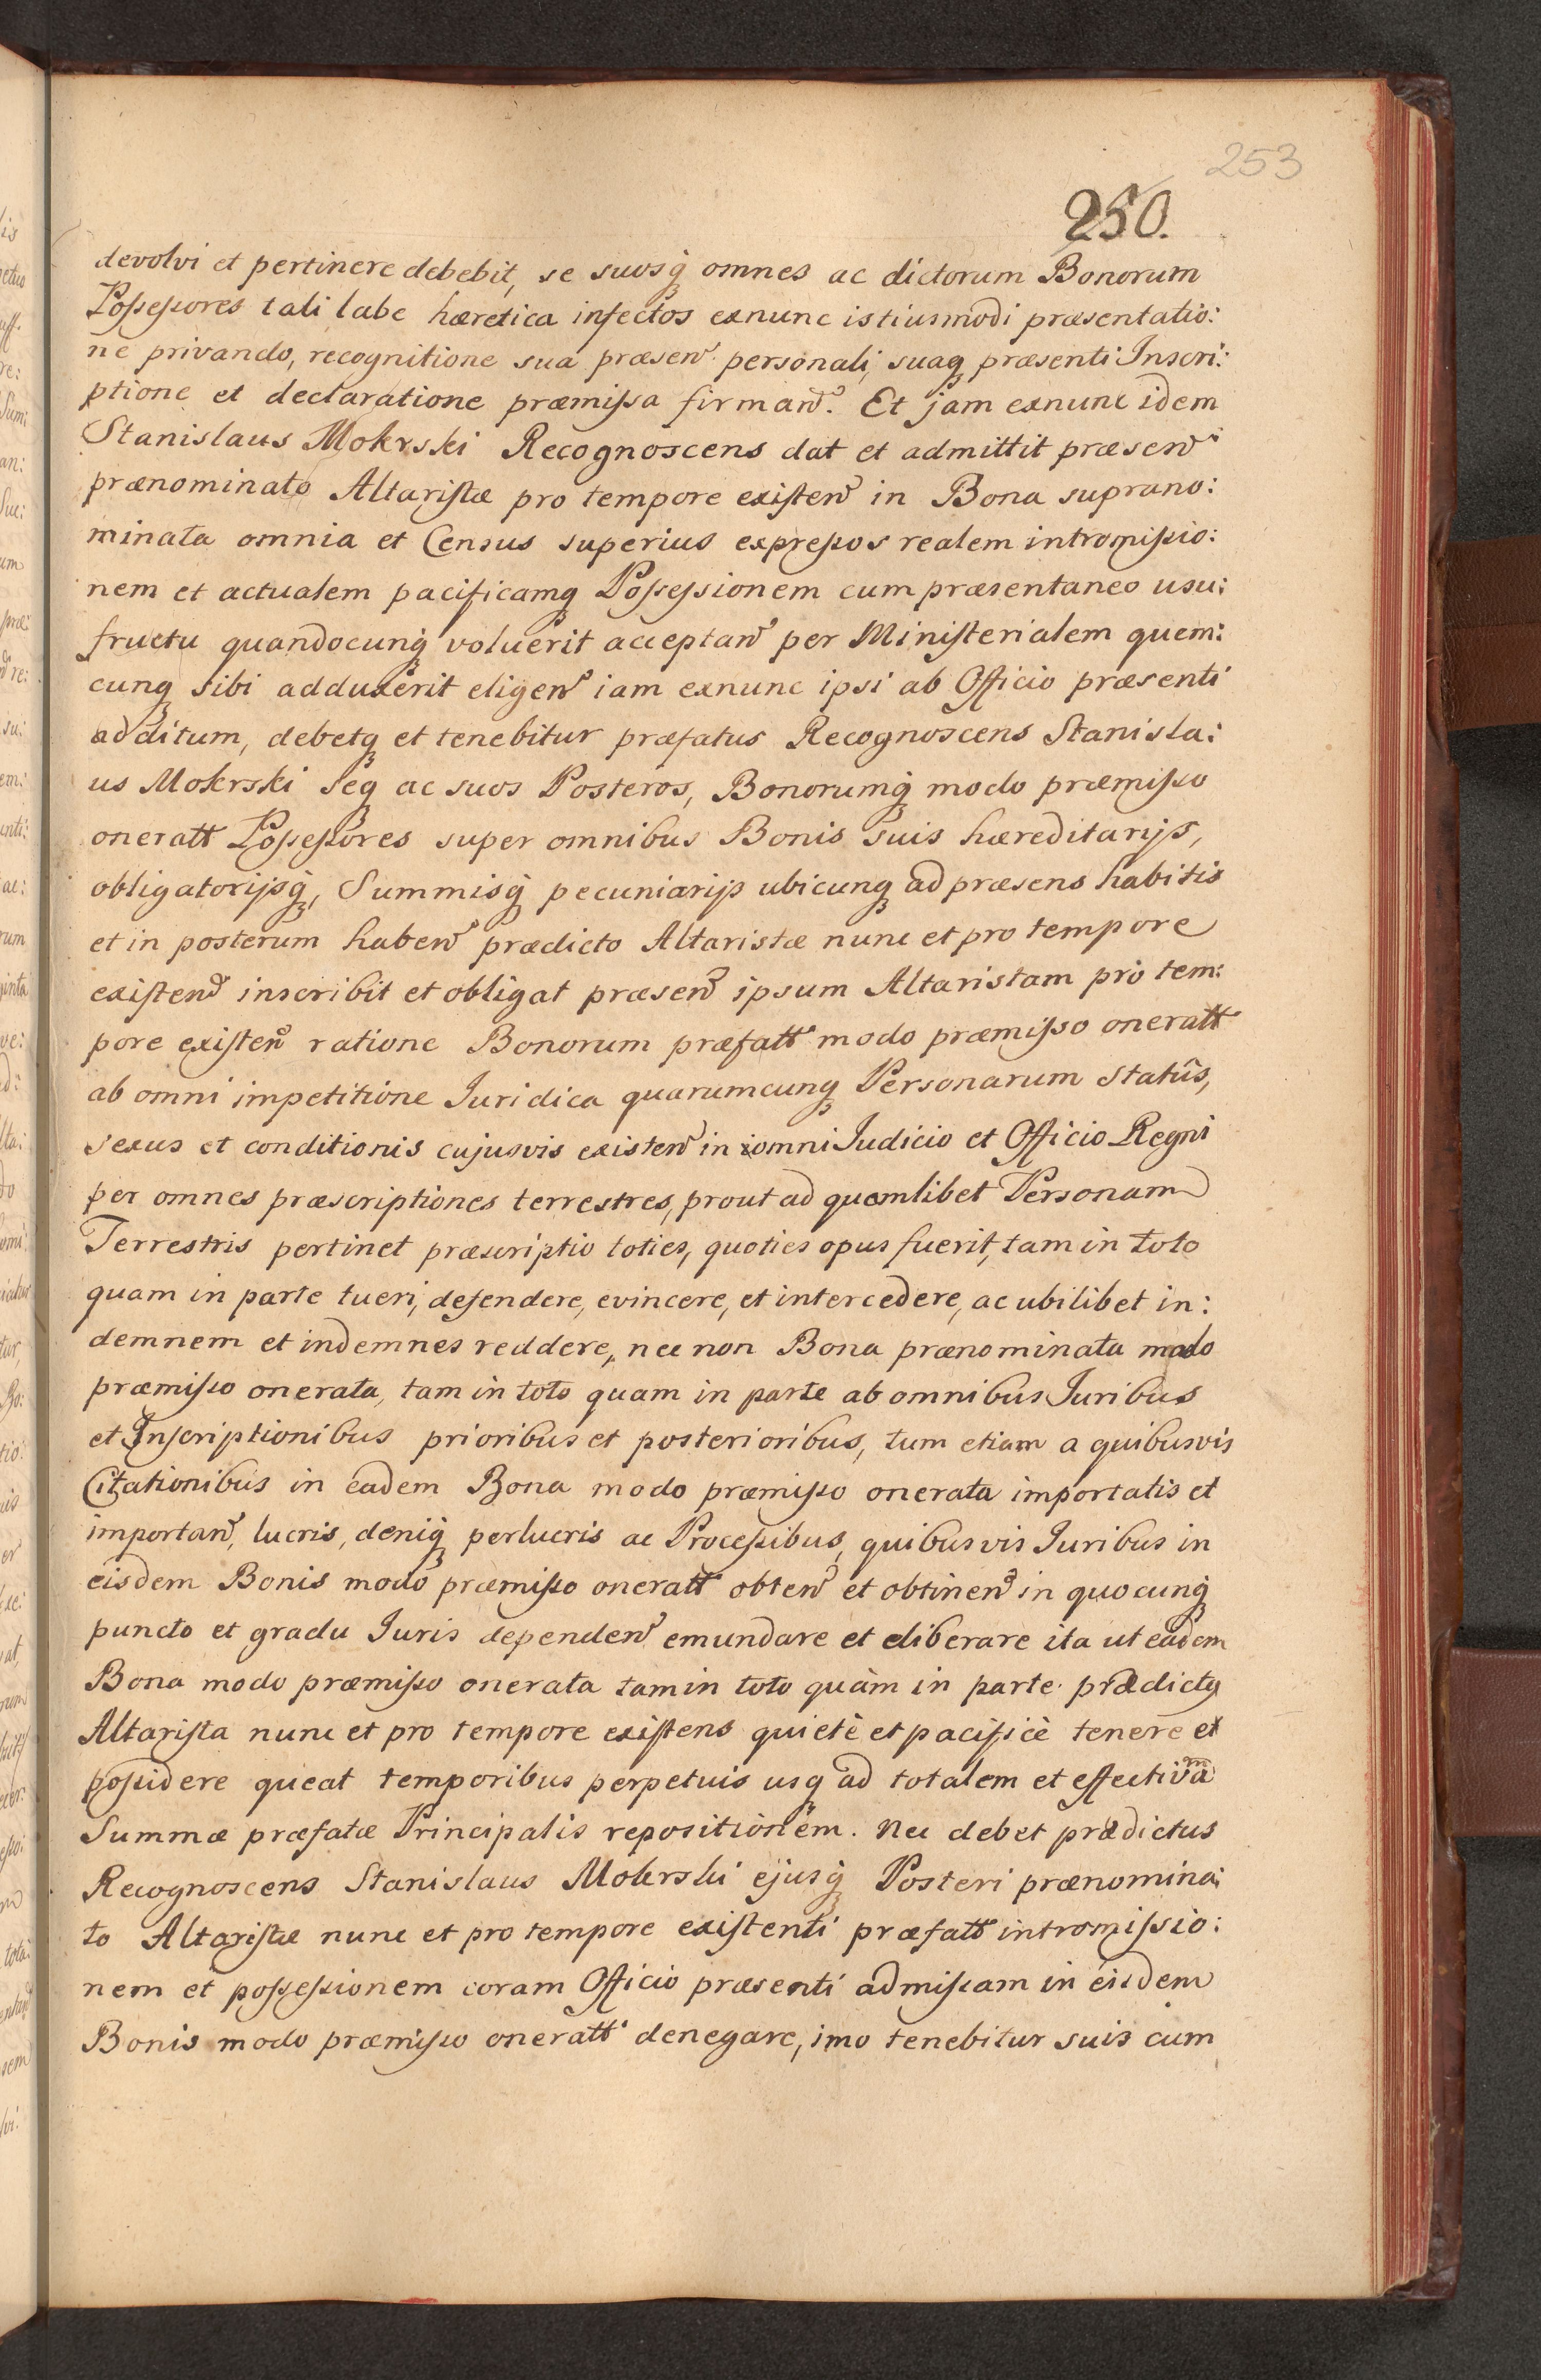 253
250.
devolvi et pertinere debebit, se suosq́ omnes ac dictorum Bonorum
Poſseſsores tali labe hæretica infectos exnunc istiusmodi præsentatio:
ne privando, recognitione sua præsen̄ personali, suaq præsenti Inscri:
ptione et declaratione præmiſsa firman̄. Et jam exnunc idem
Stanislaus Mokrski Recognoscens dat et admittit præsen̄
prænominato Altariſtæ pro tempore exiſten̄ in Bona suprano:
minata omnia et Census superius expreſsos realem intromiſsio:
nem et actualem pacificamq Poſseſsionem cum præsentaneo usu:
fructu quandocunq́ voluerit acceptan̄ per Miniſterialem quem:
cunq sibi adduxerit eligen̄ iam exnunc ipsi ab Officio præsenti
additum, debetq et tenebitur præfatus Recognoscens Stanisla:
us Mokrski seq ac suos Posteros, Bonorumq́ modo præmiſso
oneratt Poſseſsores super omnibus Bonis suis hæreditarijs,
obligatorijsq́, Summisq́ pecuniarijs ubicunq ad præsens habitis
et in posterum haben̄ prædicto Altaristæ nunc et pro tempore
exiſten̄ inscribit et obligat præsen̄ ipsum Altaristam pro tem:
pore exiſten̄ ratione Bonorum præfatt modo præmiſso oneratt
ab omni impetitione Iuridica quarumcunq Personarum statûs,
sexus et conditionis cujusvis existen̄ in omni Iudicio et Officio Regni
per omnes præscriptiones terrestres, prout ad quemlibet Personam
Terrestris pertinet præscriptio toties, quoties opus fuerit, tam in toto
quam in parte tueri, defendere, evincere, et intercedere, ac ubilibet in:
demnem et indemnes reddere, nec non Bona prænominata modo
præmiſso onerata, tam in toto quam in parte ab omnibus Iuribus
et Inscriptionibus prioribus et posterioribus, tum etiam a quibusvis
Citationibus in eadem Bona modo præmiſso onerata importatis et
importan̄, lucris, deniq́ perlucris ac Proceſsibus, quibusvis Iuribus in
eisdem Bonis modo præmiſso oneratt obten̄ et obtinen̄ in quocunq́
puncto et gradu Iuris dependen̄ emundare et eliberare ita ut eadem
Bona modo præmiſso onerata tam in toto quàm in parte prædictus
Altariſta nunc et pro tempore exiſtens quietè et pacificè tenere et
poſsidere queat temporibus perpetuis usq ad totalem et effectivam
Summæ præfatæ Principalis repositionem. Nec debet prædictus
Recognoscens Stanislaus Mokrski ejusq́ Posteri prænomina:
to Altariſtæ nunc et pro tempore exiſtenti præfatt intromiſsio:
nem et poſseſsionem coram Officio præsenti admiſsam in eisdem
Bonis modo præmiſso oneratt denegare, imo tenebitur suis cum